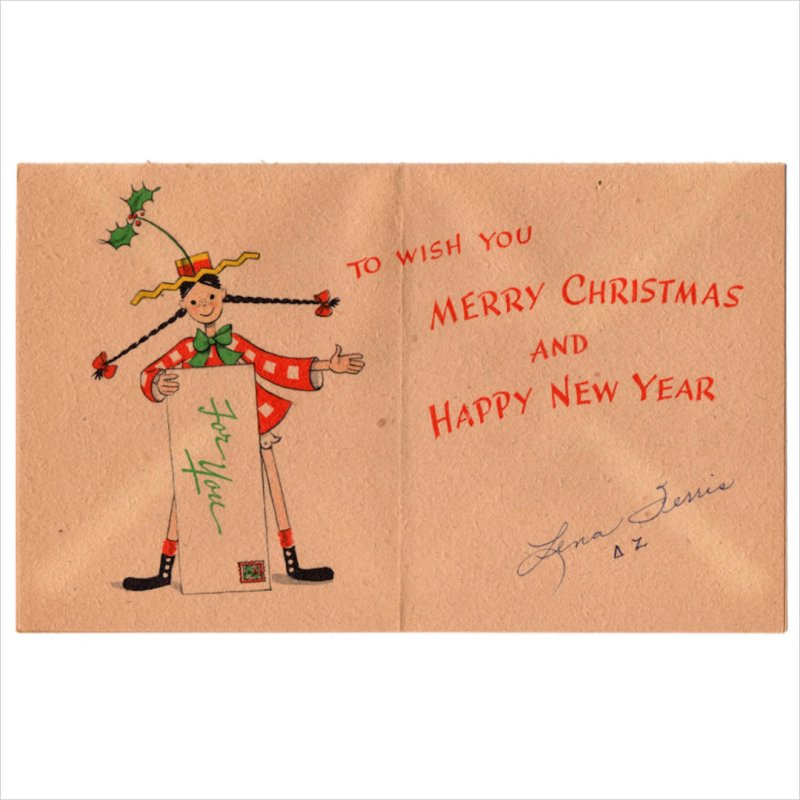 For You
TO WISH YOU
MERRY CHRISTMAS
AND
HAPPY NEW YEAR
Lena Ferris
ΔZ